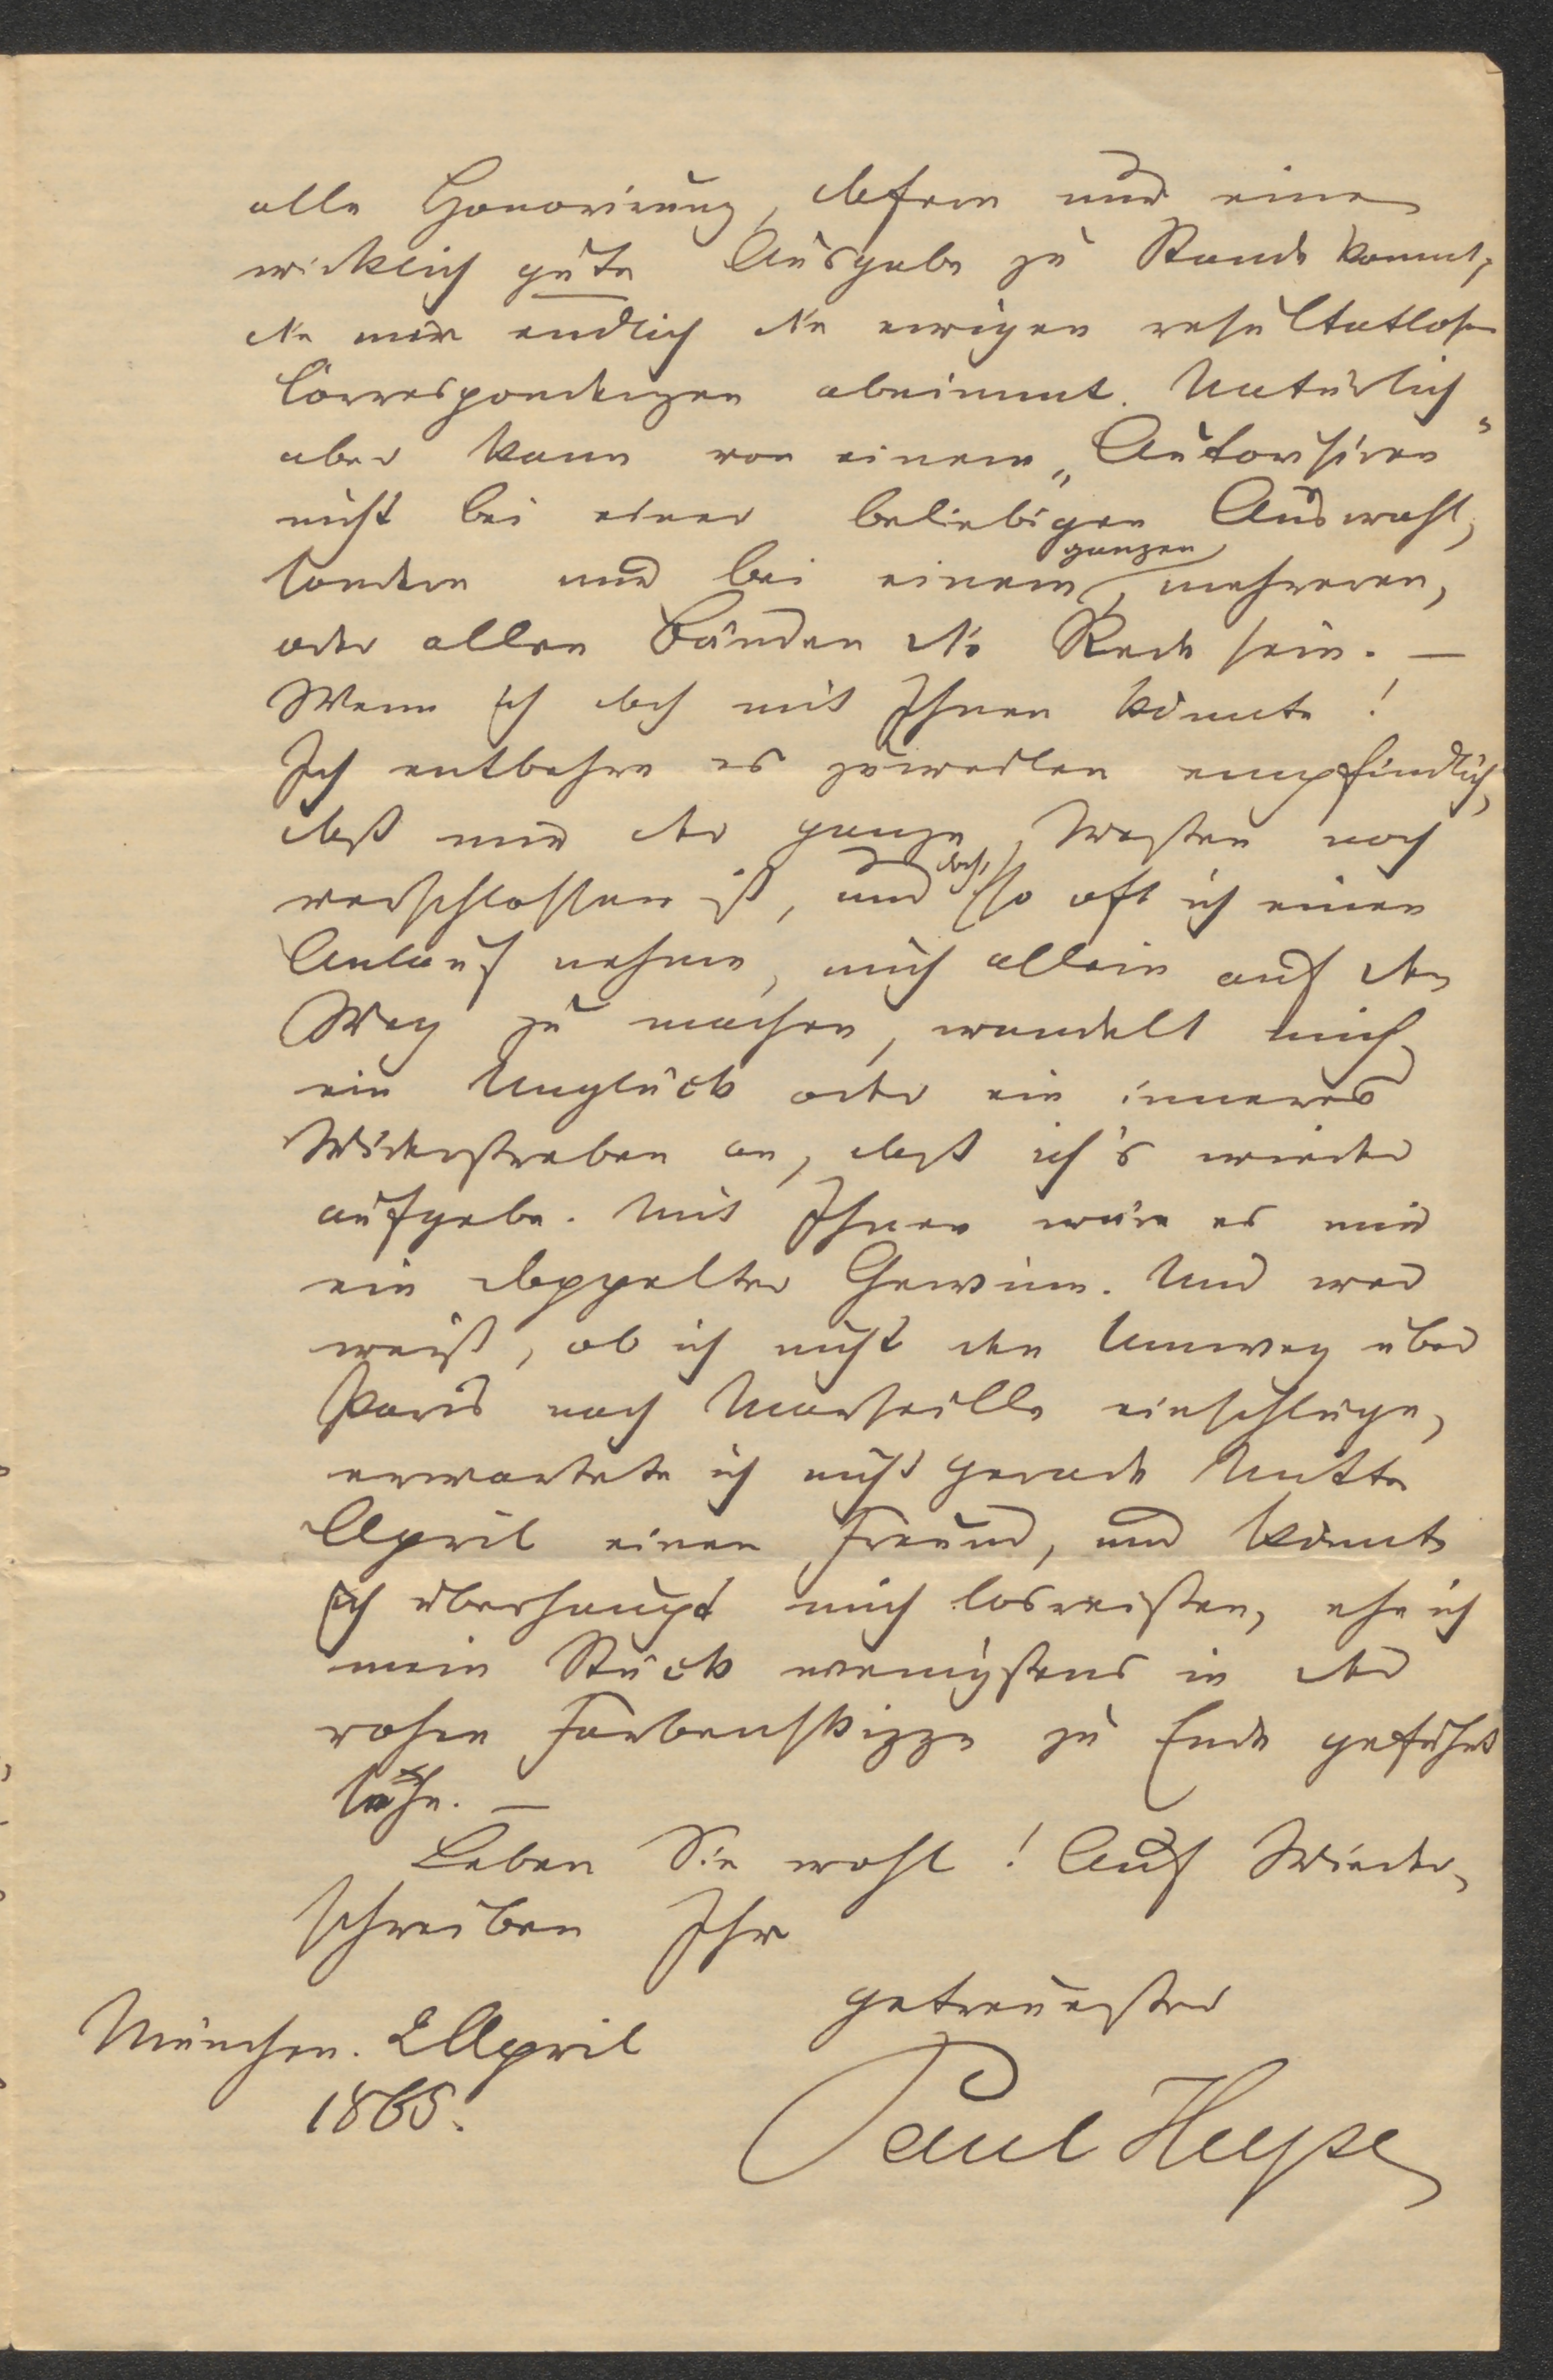 alle Honorirung, dafern nur eine
wirklich gute Ausgabe zu Stande kommt,
die mir endlich die ewigen resultatlosen
Correspondenzen abnimmt. Natürlich
aber kann von einem „Autorisiren"
nicht bei einer beliebigen Auswahl,
sondern nur bei einem ganzen, mehreren,
oder allen Bänden die Rede sein. —
Wenn ich doch mit Ihnen könnte!
Ich entbehre es zuweilen empfindlich,
daß mir der ganze Westen noch
verschlossen ist, und doch, so oft ich einen
Anlauf nehme, mich allein auf den
Weg zu machen, wandelt mich
ein Unglück oder ein inneres
Widerstreben an, daß ich's wieder
aufgebe. Mit Ihnen wäre es mir
ein doppelter Gewinn. Und wer
weiß, ob ich nicht den Umweg über
Paris nach Marseille einschlüge,
erwartete ich nicht gerade Mitte
April einen Freund, und könnte
ich überhaupt mich losreißen, ehe ich
mein Stück wenigstens in der
rohen Farbenskizze zu Ende geführt
sähe. —
Leben Sie wohl! Auf Wieder-
schreiben Ihr
getreuester
München. 2 April
1865.
Paul Heyse